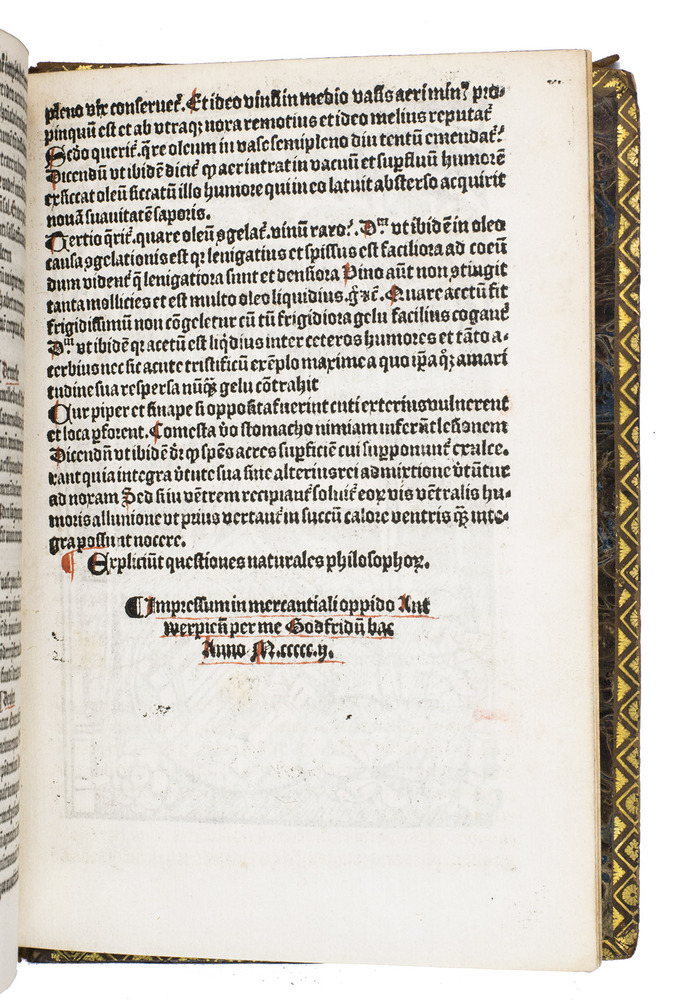 pleno vix conseruet᷑. Et ideo vinū in medio vasis aeri minꝰ pro-
pinquū est et ab vtraqꝫ nora remotius et ideo melius reputat᷑
Secūdo querit᷑. q̄re oleum in vase semipleno diu tentū emendat᷑.
Dicendū vt ibidē dicit᷑ ꝙ aer intrat in vacuū et suꝑfluū humorē
exsiccat oleū siccatū illo humore qui in eo latuit absterso acquirit
nouā suauitatē saporis.
Tertio q̄rit᷑. quare oleū ꝯgelat᷑. vinū raro. Dm̄ vt ibidē in oleo
causa ꝯgelationis est qꝛ lenigatius et spissus est faciliora ad coeū
dum vident᷑ q̄ lenigatiora sunt et densiora Vino aūt non ꝯtingit
tanta mollicies et est multo oleo liquidius. Quare acetū fit
frigidissimū non cōgeletur cū tū frigidiora gelu facilius cogant᷑
Dm̄ vt ibidē qꝛ acetū est liq̄dius inter ceteros humores et tāto a-
cerbius nec sic acute tristificū exēplo maxime a quo ip̄a amari
tudine sua respersa nūꝗ̄ gelu cōtrahit
Cur piper et sinape si opposita fuerint cuti exterius vulnerent
et loca ꝑforent. Comesta v̄o stomacho nimiam inferāt lesionem
Dicendū vt ibidē sp̄ēs acres suꝑficiē cui supponunt᷑ exulce-
rant quia integra v̄tute sua sine alterius rei admixtione v̄tūtur
ad noram Sed si iu vētrem recipiant᷑ soluit᷑ eoꝝ vis vētralis hu-
moris allunione vt prius vertant᷑ in succū calore ventris ꝗ̄ inte-
gra possunt nocere.
¶ Expliciūt questiones naturales philosophoꝝ.
¶Impressum in mercantiali oppido Ant
werpieñ per me Godfridū bac
Anno M.ccccc.ij.